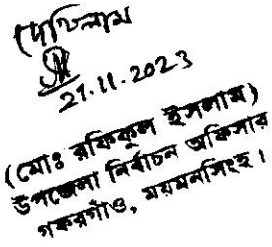 দেখিলাম
21.11.2023
(মোঃ রফিকুল ইসলাম)
উপজেলা নির্বাচন অফিসার
গফরগাঁও, ময়মনসিংহ।